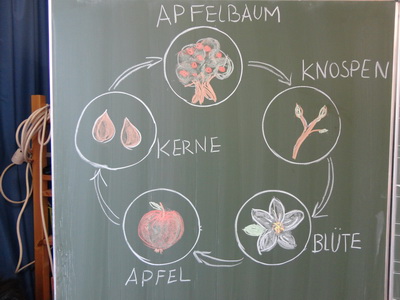 APFELBAUM
KNOSPEN
BLÜTE
APFEL
KERNE